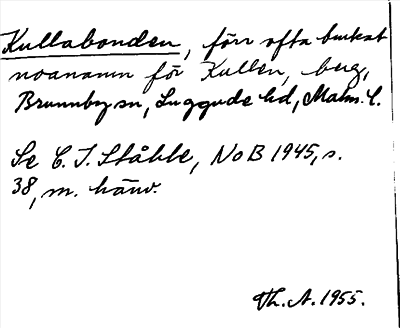 Kullabonden, förr ofta brukat
noanamn för Kullen, berg,
Brunnby sn, Luggude hd, Malm. l.
Se C. I. Ståhle, NoB 1945, s.
38, m. hänv.
Th. A. 1955.